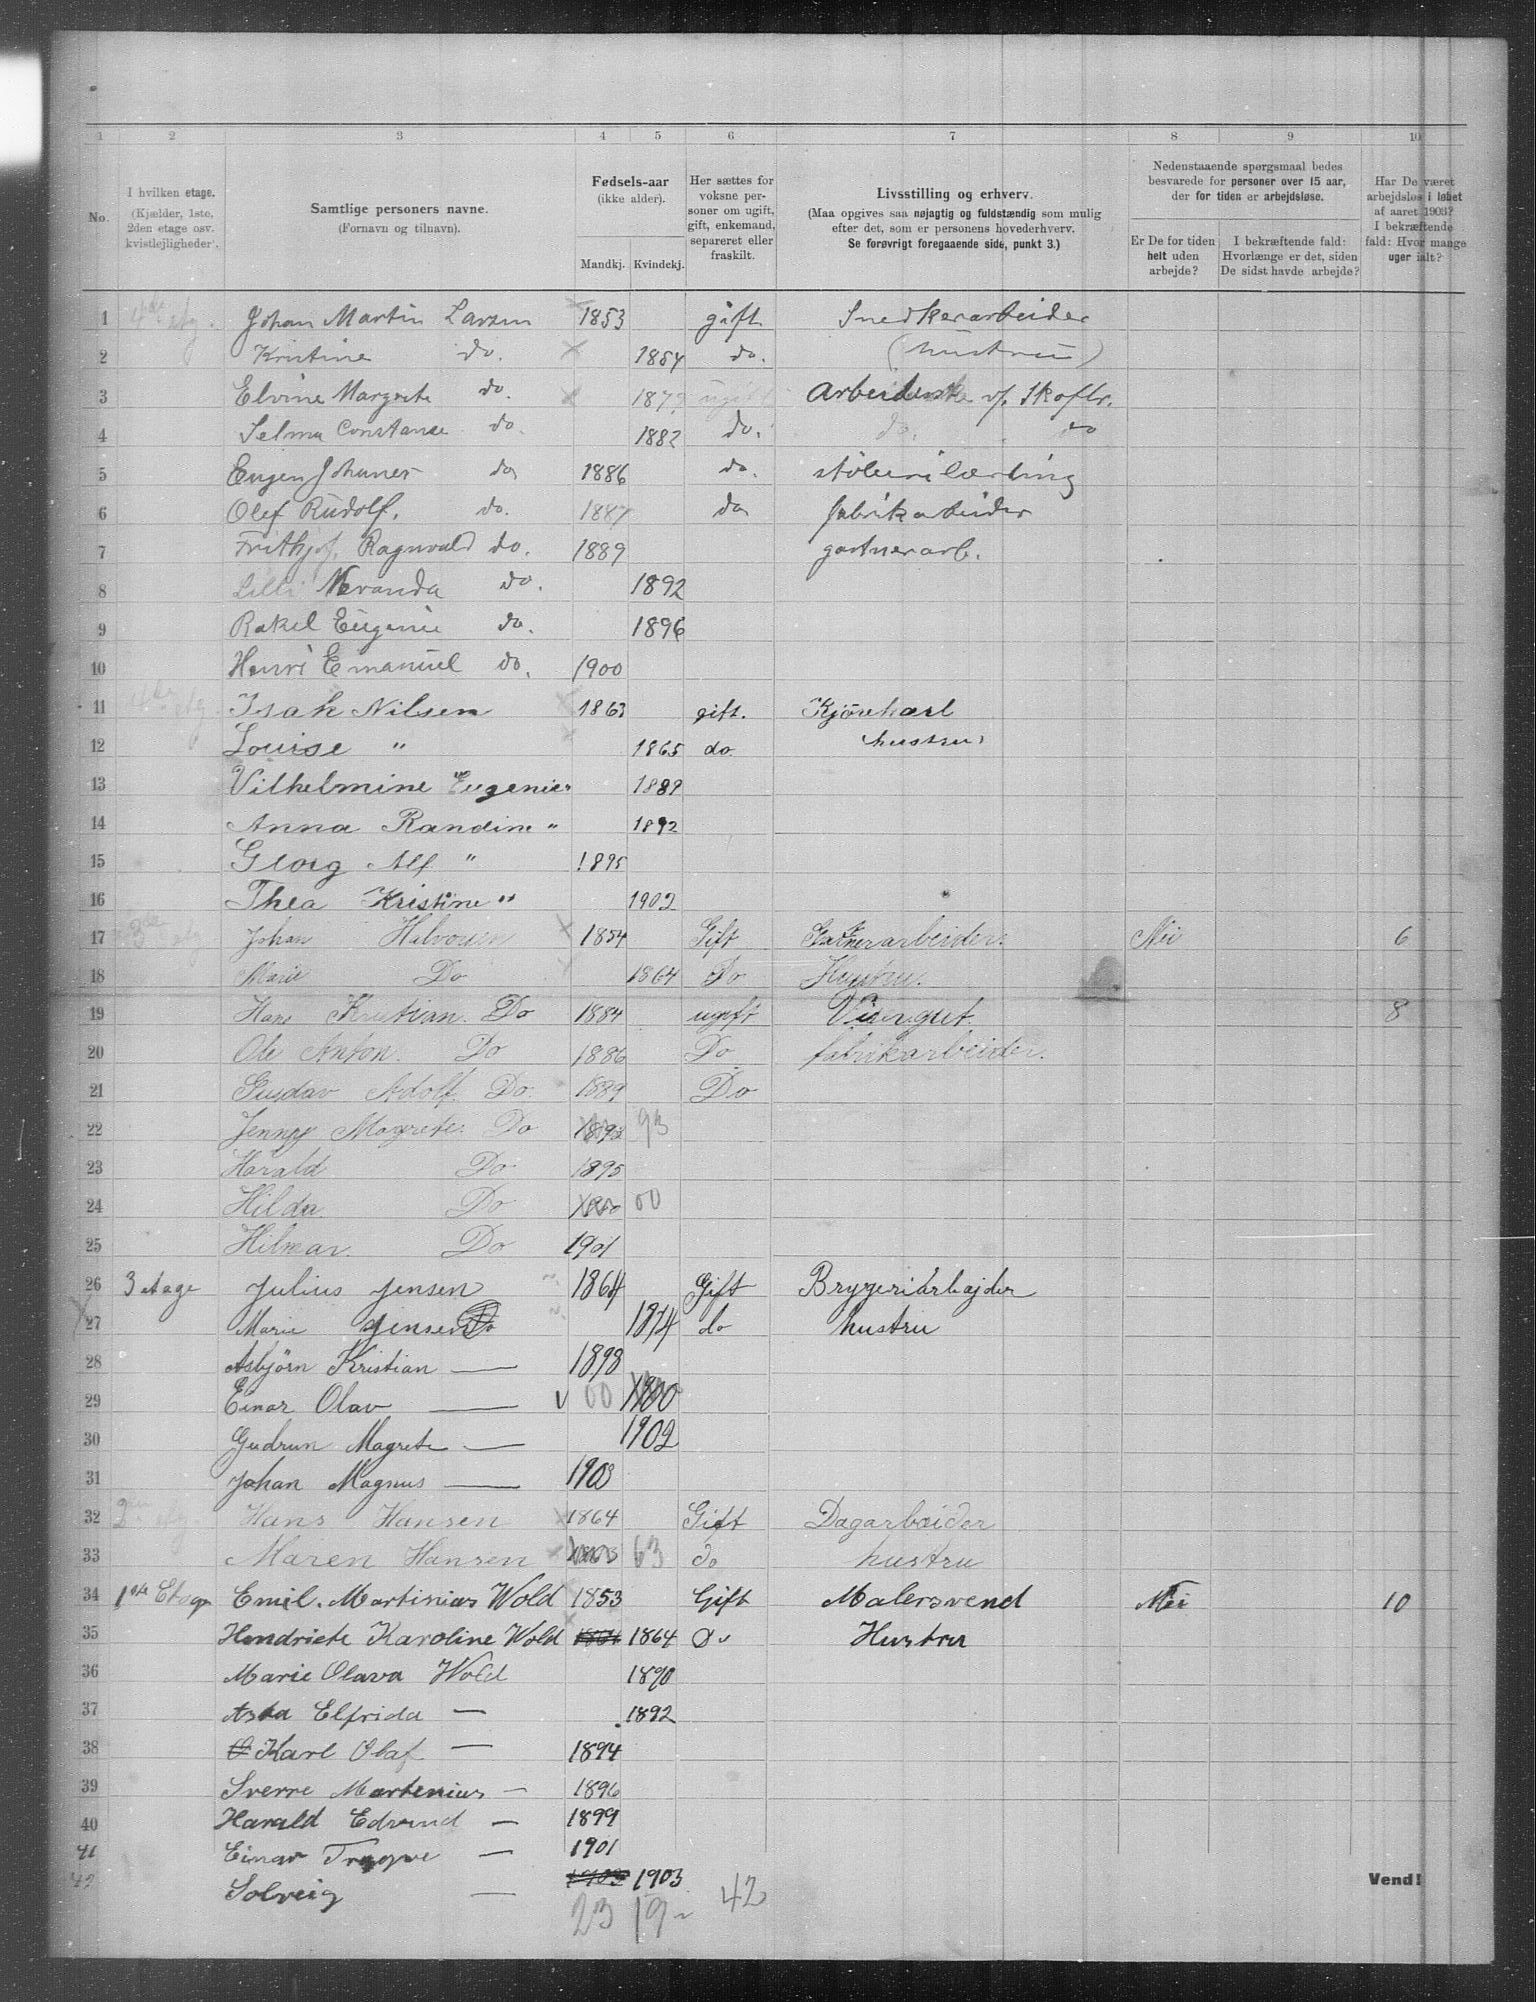 1 2 3 4 5 6 7 8 9 10
No.
I hvilken etage.
(Kjælder, 1ste,
2den etage osv.
kvistlejligheder).
Samtlige personers navne.
(Fornavn og tilnavn).
Fødsels-aar
(ikke alder).
Mandkj. Kvindekj.
Her sættes for
voksne per-
soner om ugift,
gift, enkemand,
separeret eller
fraskilt.
Livsstilling og erhverv.
(Maa opgives saa nøjagtig og fuldstændig som mulig
efter det, som er personens hovederhverv.
Se forøvrigt foregaaende side, punkt 3.)
Nedenstaaende spørgsmaal bedes
besvarede for personer over 15 aar,
der for tiden er arbejdsløse.
Er De for tiden
helt uden
arbejde?
I bekræftende fald:
Hvorlænge er det, siden
De sidst havde arbejde?
Har De været
arbejdsløs i løbet
af aaret 1903?
I bekræftende
fald: Hvor mange
uger ialt?
1 4de etg. Johan Martin Larsen 1853 gift Snedkerarbeider
2 Kristine do. 1854 do. (hustru)
3 Elvine Margrete do. ugift Arbeiderske v/. Skofbr.
4 Selma Constanse do. 1882 do. do. do
5 Eugen Johanes do 1886 do. støberilærling
6 Olef Rudolf. do. 1887 do fabrikarbeider
7 Frithjof. Ragnvald do. 1889 gartnerarb.
8 Lilli Veranda do. 1892
9 Rakel Eugenie do. 1896
10 Henri Emanuel do. 1900
11 etg. Isak Nilsen 1863 gift. Kjørekarl
12 Louise " 1865 do. hustru
13 Vilhelmine Eugenie " 1889
14 Anna Randine " 1892
15 Georg Alf " 1895
16 Thea Kristine " 1902
17 3die etg Johan Halvorsen 1854 Gift Gartnerarbeider. Nei 6
18 Marie Do 1864 Do Hustru.
19 Hans Kristian. Do 1884 ugift Visergut. 8
20 Ole Anton. Do 1886 Do fabrikarbeider.
21 Gustav Adolf. Do. 1889 Do
22 Jenny Magrete. Do 1893 93
23 Harald Do 1895
24 Hilda Do 00
25 Hilmar. Do 1901
26 3 etage Julius Jensen 1864 Gift Bryggeriarbejder
27 Marie Jensen Do 1874 do hustru
28 Asbjörn Kristian — 1898
29 Einar Olav — v 00 1900
30 Gudrun Magrete — 1902
31 Johan Magnus — 1903
32 2den etg. Hans Hansen 1864 Gift Dagarbeider
33 Maren Hansen 1863 63 do hustru
34 1ste Etage Emil. Martinius Wold 1853 Gift Malersvend Nei 10
35 Hendriete Karoline Wold 1864 1864 Do Hustru
36 Marie Olava Wold 1890
37 Asta Elfrida — 1892
38 Karl Olaf — 1894
39 Sverre Martenius — 1896
40 Harald Edvind — 1899
41 Einar Trygve — 1901
42 Solveig — 1903 1903
23 19 42
Vend!